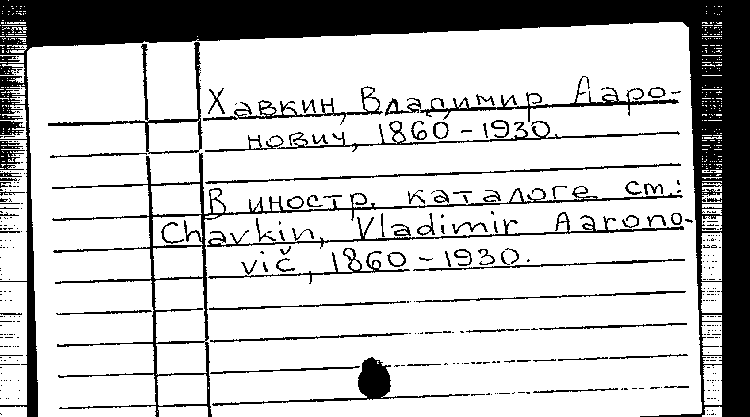 Хавкин, Владимир Ааро-
нович, 1860-1930.
В иностр. каталоге см.:
Chavkin, Vladimir Aarono-
vič, 1860-1930.